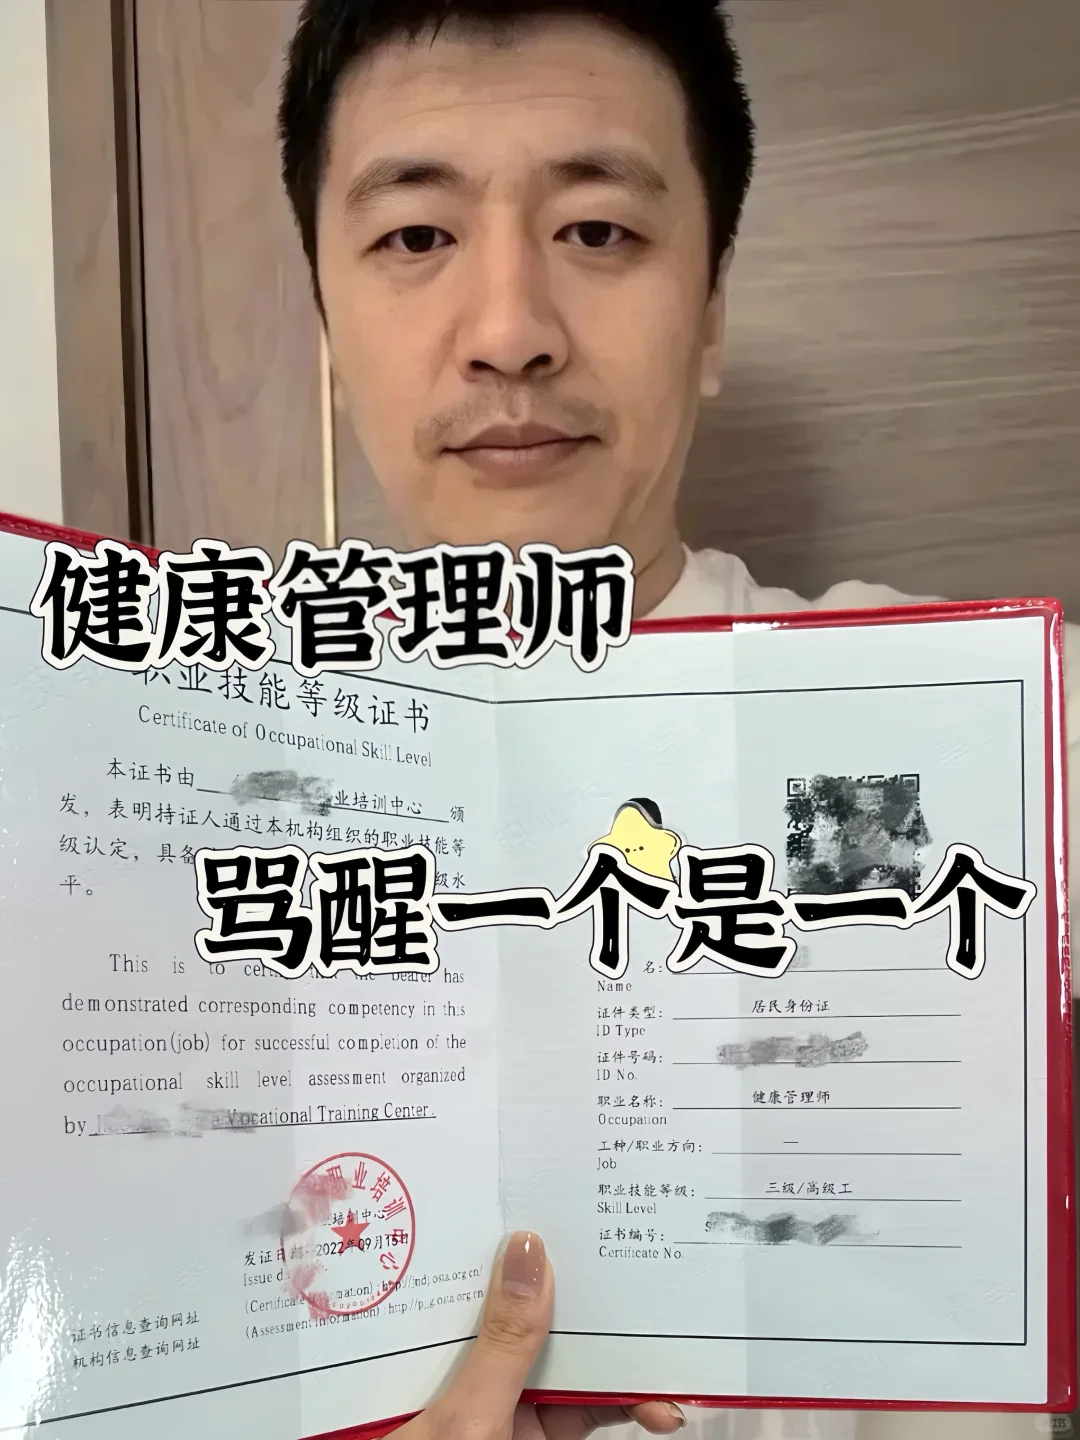 健康管理师
职业技能等级证书
Certificate of Occupational Skill Level
本证书由
业培训中心 颁
发，表明持证人通过本机构组织的职业技能等
级认定，具备
级水
平。
骂醒一个是一个
This is to certify that the bearer has
demonstrated corresponding competency in this
occupation(job) for successful completion of the
occupational skill level assessment organized
by
Vocational Training Center.
职业培训中心
业培训中心
发证日期：2022年09月15日
Issue d
(Certificate Information)：http://jndj.osta.org.cn/
(Assessment Information)：http://pjjg.osta.org.cn
证书信息查询网址
机构信息查询网址
名：
Name
证件类型： 居民身份证
ID Type
证件号码：
ID No.
职业名称： 健康管理师
Occupation
工种/职业方向： —
Job
职业技能等级： 三级/高级工
Skill Level
证书编号： S
Certificate No.